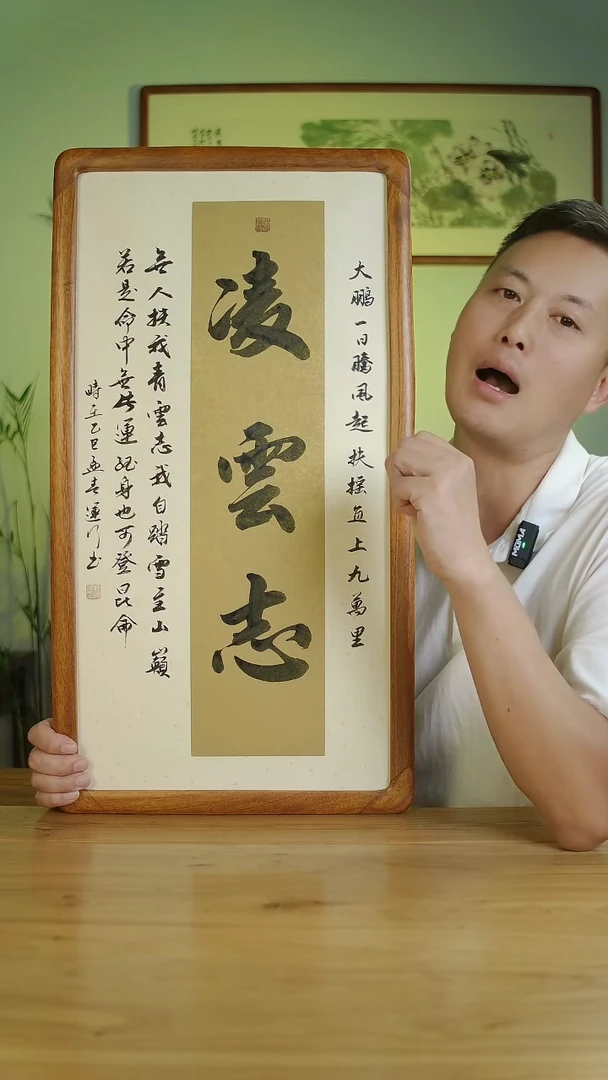 大鵬一日騰風起扶搖直上九萬里
凌雲志
無人扶我青雲志我自踏雪至山巔
若是命中無此運孤身也可登昆侖
時在乙巳孟春運行书
MOMA